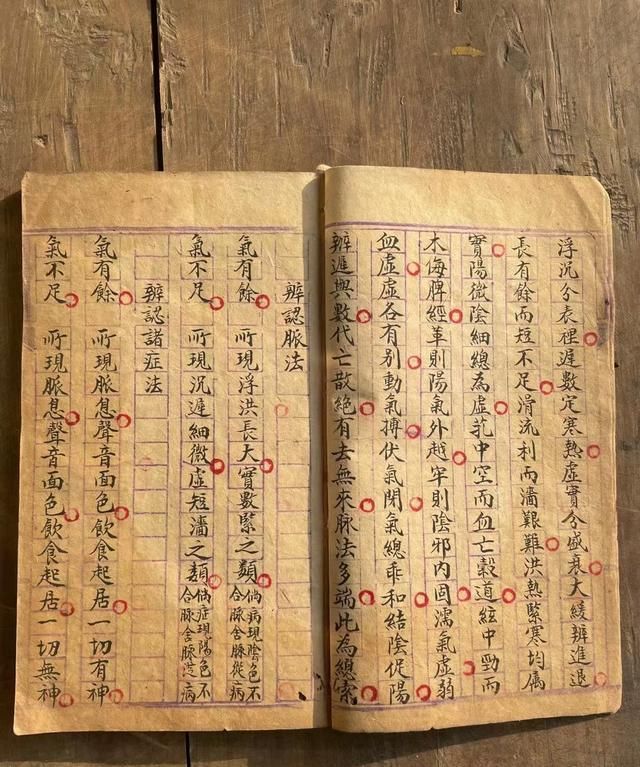 浮沉分表裡遲數定寒熱虛實分盛衰大緩辨進退
長有餘而短不足滑流利而濇艱難洪熱緊寒均屬
實陽微陰細總為虛芤中空而血亡轂道絃中勁而
木侮脾經革則陽氣外越牢則陰邪內固濡氣虛弱
血虛虛各有別動氣搏伏氣閉氣總乖和結陰促陽
辨遲與數代亡散絕有去無來脈法多端此為總索
辨認脈法
氣有餘 所現浮洪長大實數緊之類倘病現陰色不合脈舍脈從病
氣不足 所現沉遲細微虛短濇之類倘症現陽色不合脈舍脈從病
辨認諸症法
氣有餘 所現脈息聲音面色飲食起居一切有神
氣不足 所現脈息聲音面色飲食起居一切無神